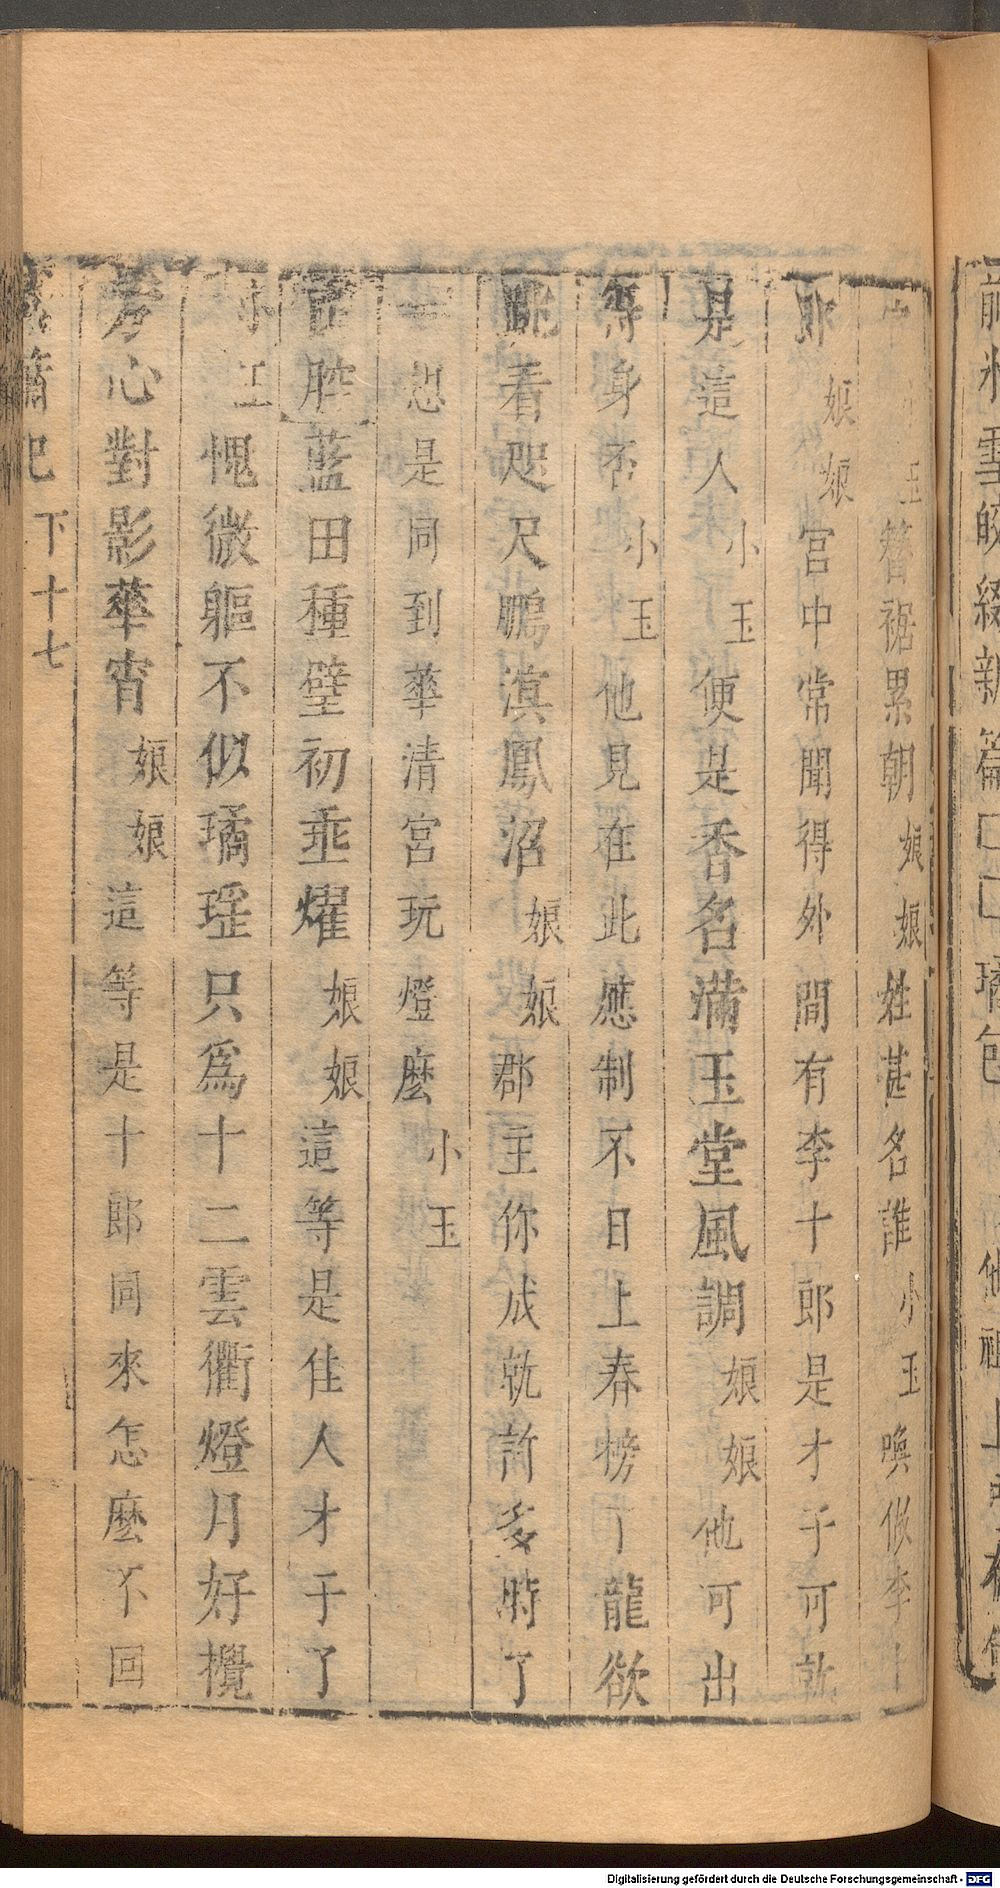 玉簪裾累朝娘娘姓甚名誰小玉喚似李十
郎娘娘宮中常聞得外間有李十郎是才子可就
是這人小玉便是香名滿玉堂風調娘娘他可出
身不小玉他見在此應制不日上春榜了龍欲
看咫尺鵬溟鳳沼娘娘郡主你成就許多時了
忽是同到華清宮玩燈麼小玉
腔藍田種璧初垂燿娘娘這等是佳人才子了
小玉愧微軀不似璚瑤只為十二雲衢燈月好攪
芳心對影華宵娘娘這等是十郎同來怎麼不回
紫簫記 下 十七
雪皎綴新篇□□璚包
他祖上
Digitalisierung gefördert durch die Deutsche Forschungsgemeinschaft - DFG